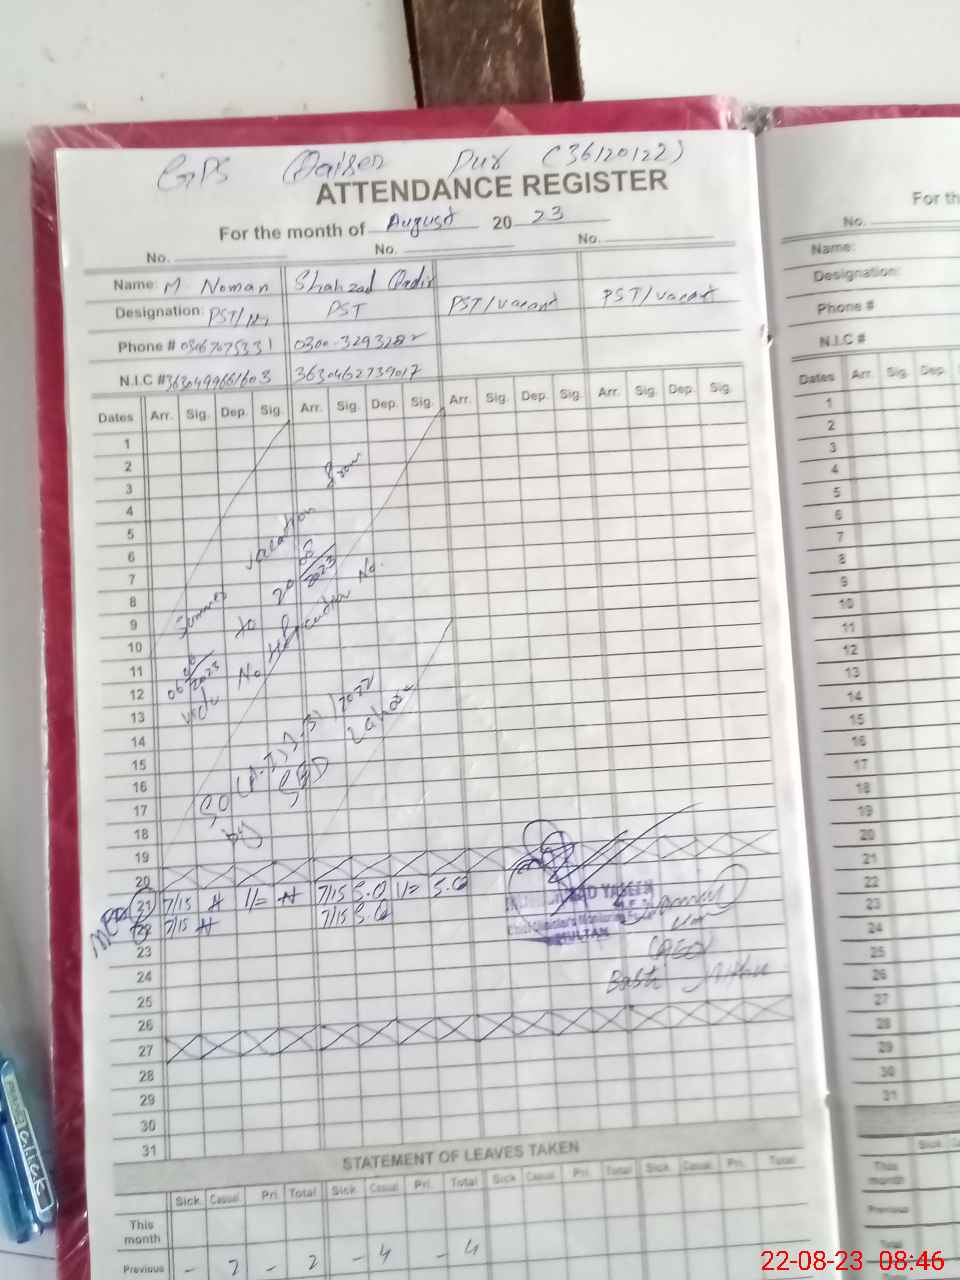 GPS Qaiser Pur (36120122)
ATTENDANCE REGISTER
For the month of August 2023
No. No. No.
Name: M Noman Shahzad Qadir
Designation: PST/ PST PST/vacant PST/vacant
Phone # 03067075331 0300-3293282
N.I.C # 3630499661603 3630462739017
Dates Arr. Sig. Dep. Sig. Arr. Sig. Dep. Sig. Arr. Sig. Dep. Sig. Arr. Sig. Dep. Sig.
1
2
3
4
5
6
7
8
9
10
11
12
13
14
15
16
17
18
19
20
21 7/15 1/= 7/15 S.Q 1/= S.Q
22 7/15 7/15 S.Q
23
24
25
26
27
28
29
30
31
Summer vacation from
06/06/2023 to 20/08/2023
vide No Notification No.
SO(A-I)
by SED Lahore
YASEEN
Monitoring
MULTAN
Basti
STATEMENT OF LEAVES TAKEN
Sick Casual Pri. Total Sick Casual Pri. Total Sick Casual Pri. Total Sick Casual Pri. Total
This month
Previous - 2 - 2 - 4 - 4
For th
No.
Name:
Designation:
Phone #
N.I.C #
Dates Arr. Sig. Dep.
1
2
3
4
5
6
7
8
9
10
11
12
13
14
15
16
17
18
19
20
21
22
23
24
25
26
27
28
29
30
31
Sick
This month
Previous
Total
click
22-08-23 08:46